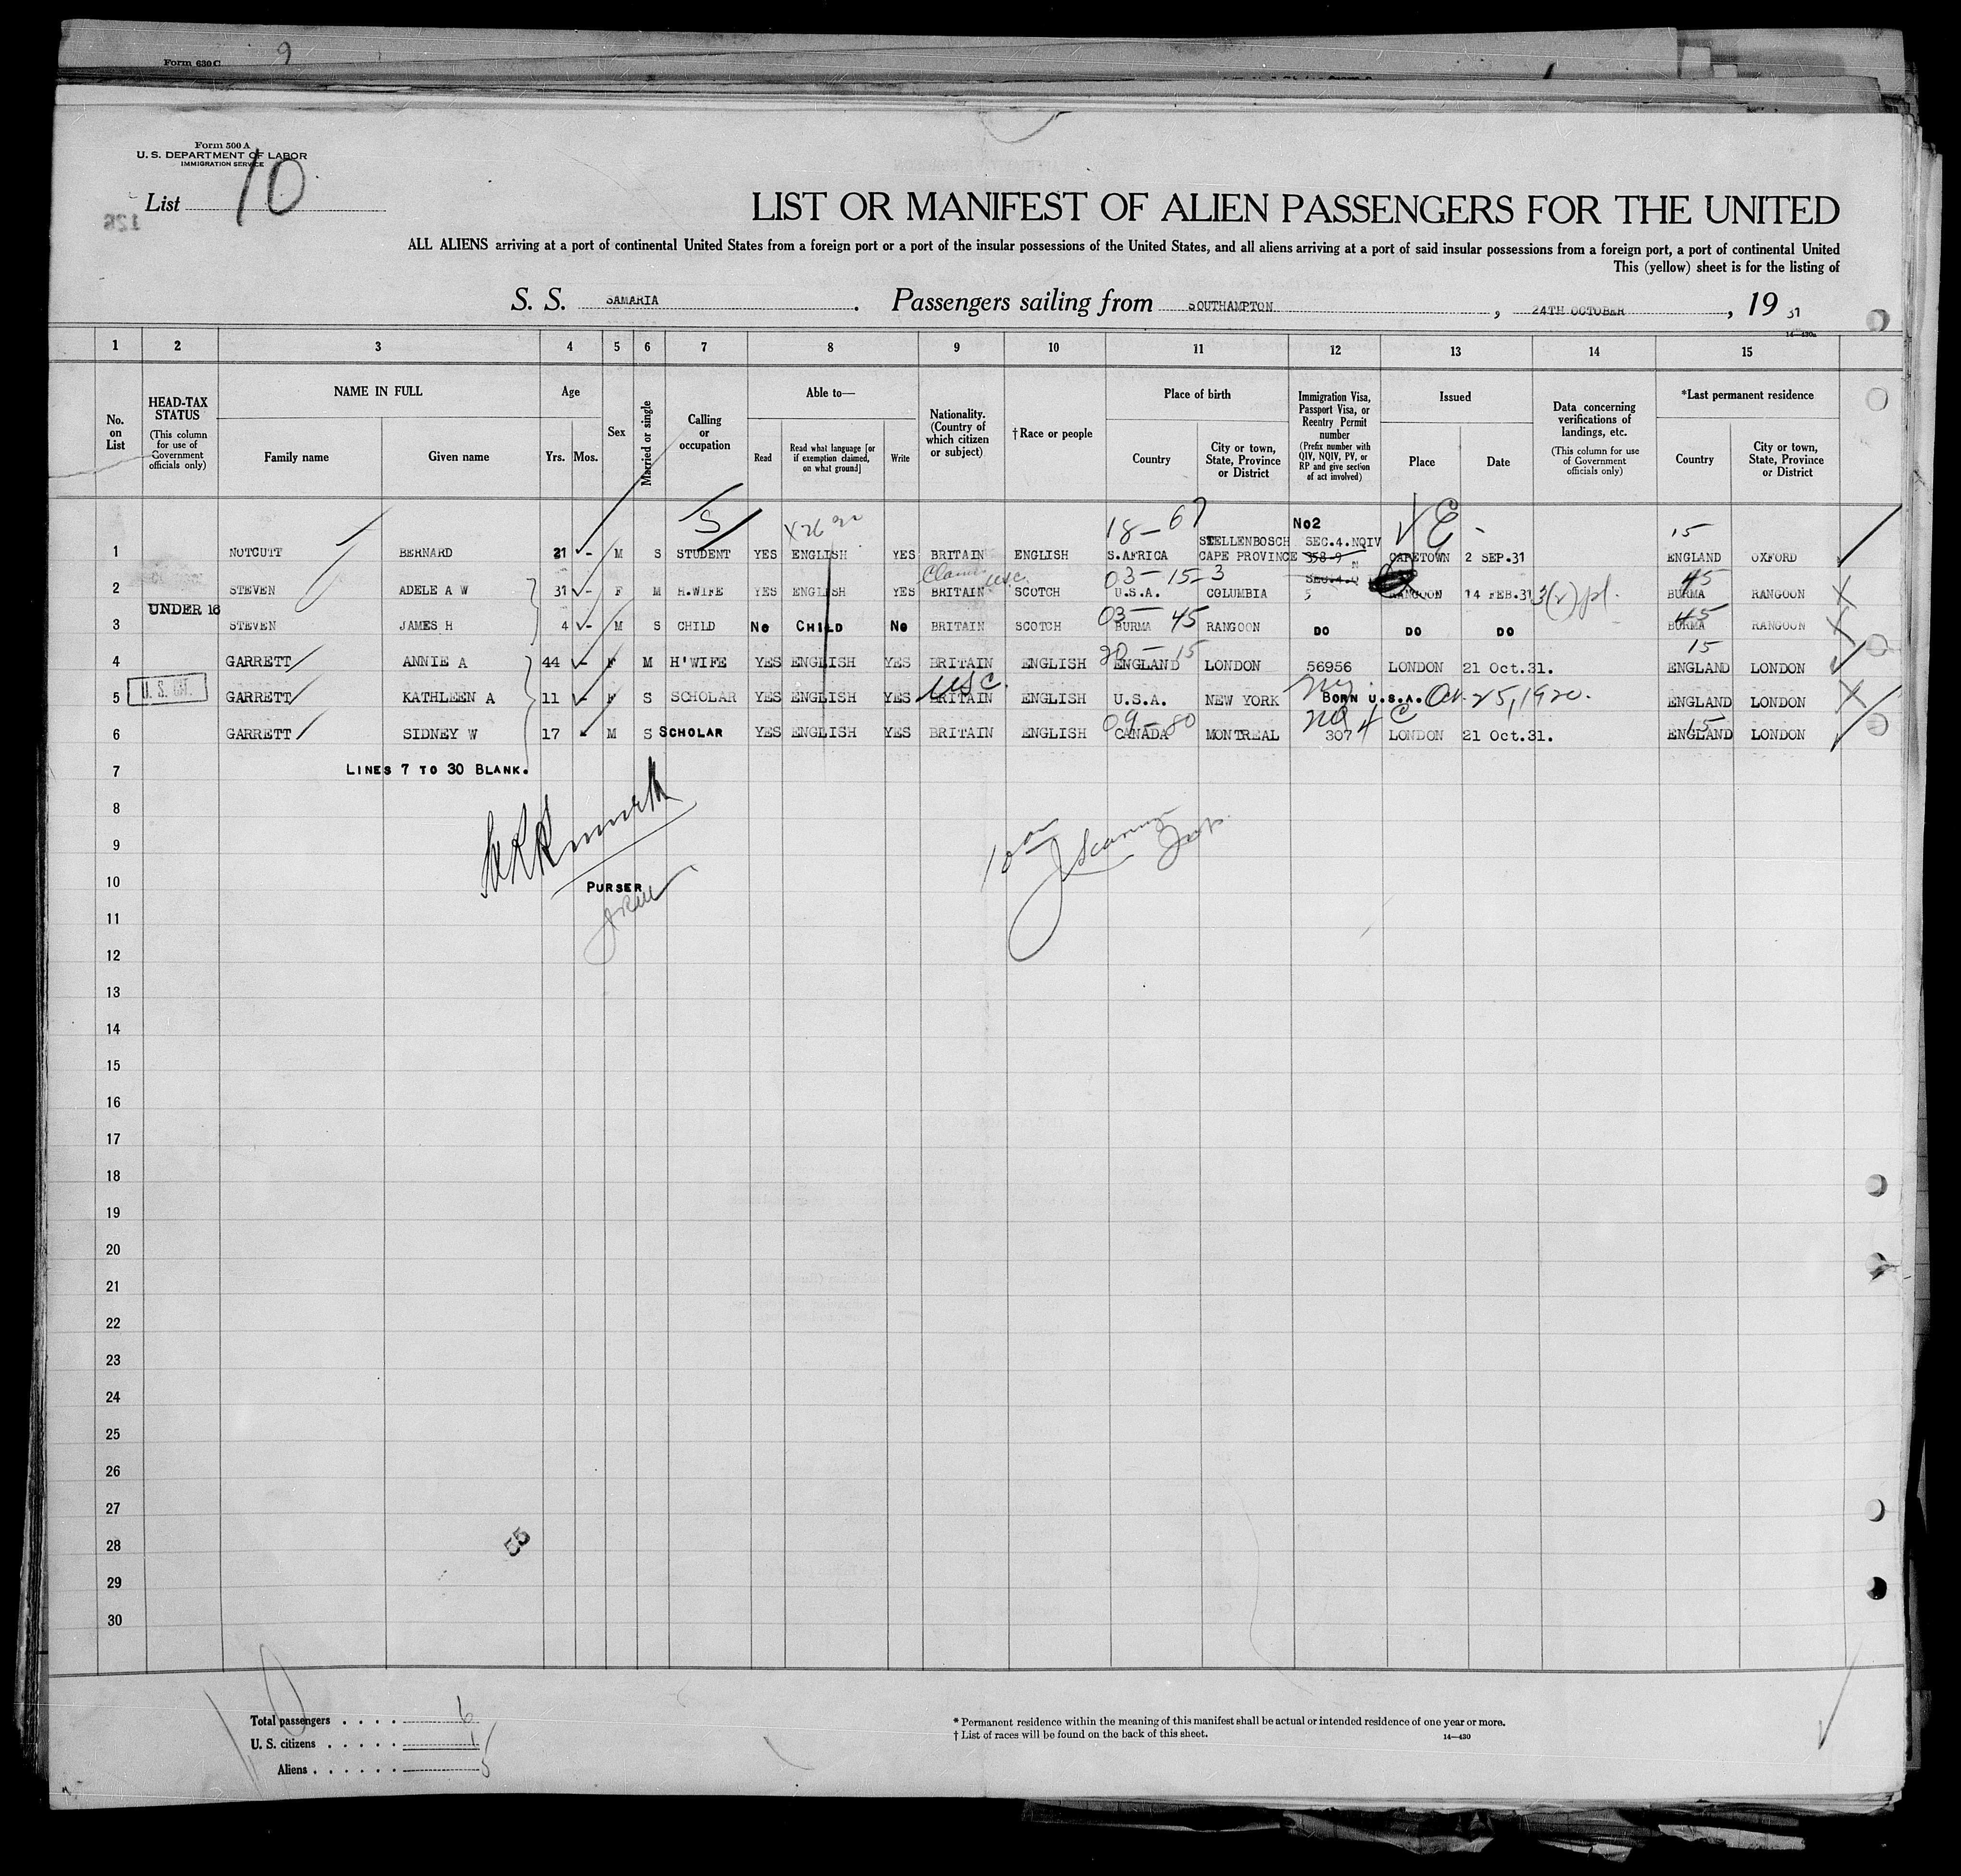 Form 630 C 9
Form 500 A
U. S. DEPARTMENT OF LABOR
IMMIGRATION SERVICE
List 10
126
LIST OR MANIFEST OF ALIEN PASSENGERS FOR THE UNITED
ALL ALIENS arriving at a port of continental United States from a foreign port or a port of the insular possessions of the United States, and all aliens arriving at a port of said insular possessions from a foreign port, a port of continental United
This (yellow) sheet is for the listing of
S. S. SAMARIA. Passengers sailing from SOUTHAMPTON, 24TH OCTOBER, 19 31
14—430a
1 2 3 4 5 6 7 8 9 10 11 12 13 14 15
No. on List
HEAD-TAX STATUS (This column for use of Government officials only)
NAME IN FULL
Family name Given name
Age
Yrs. Mos.
Sex
Married or single
Calling or occupation
Able to—
Read Read what language [or if exemption claimed, on what ground] Write
Nationality. (Country of which citizen or subject)
†Race or people
Place of birth
Country City or town, State, Province or District
Immigration Visa, Passport Visa, or Reentry Permit number (Prefix number with QIV, NQIV, PV, or RP and give section of act involved)
Issued
Place Date
Data concerning verifications of landings, etc. (This column for use of Government officials only)
*Last permanent residence
Country City or town, State, Province or District
S 18 — 67 No2 15
1 NOTCUTT BERNARD 21 - M S STUDENT YES ENGLISH YES BRITAIN ENGLISH S.AFRICA STELLENBOSCH CAPE PROVINCE SEC.4.NQIV 358-9 CAPETOWN 2 SEP.31 ENGLAND OXFORD
Claims USC 03 — 15-3 45
2 STEVEN ADELE A W 31 - F M H.WIFE YES ENGLISH YES BRITAIN SCOTCH U.S.A. COLUMBIA 5 RANGOON 14 FEB.31 BURMA RANGOON
UNDER 16 03 — 45 45
3 STEVEN JAMES H 4 - M S CHILD NO CHILD NO BRITAIN SCOTCH BURMA RANGOON DO DO DO BURMA RANGOON
20 — 15 15
4 GARRETT ANNIE A 44 - F M H'WIFE YES ENGLISH YES BRITAIN ENGLISH ENGLAND LONDON 56956 LONDON 21 Oct.31. ENGLAND LONDON
U. S. CIT. USC
5 GARRETT KATHLEEN A 11 - F S SCHOLAR YES ENGLISH YES BRITAIN ENGLISH U.S.A. NEW YORK BORN U.S.A. Oct. 25, 1920. ENGLAND LONDON
09 — 80 NQ 4 C 15
6 GARRETT SIDNEY W 17 M S SCHOLAR YES ENGLISH YES BRITAIN ENGLISH CANADA MONTREAL 307 LONDON 21 Oct.31. ENGLAND LONDON
7 LINES 7 TO 30 BLANK.
8
9
10 PURSER
11
12
13
14
15
16
17
18
19
20
21
22
23
24
25
26
27
28 55
29
30
Total passengers . . . . 6
U. S. citizens . . . . . 1
Aliens . . . . . . 5
* Permanent residence within the meaning of this manifest shall be actual or intended residence of one year or more.
† List of races will be found on the back of this sheet. 14—430